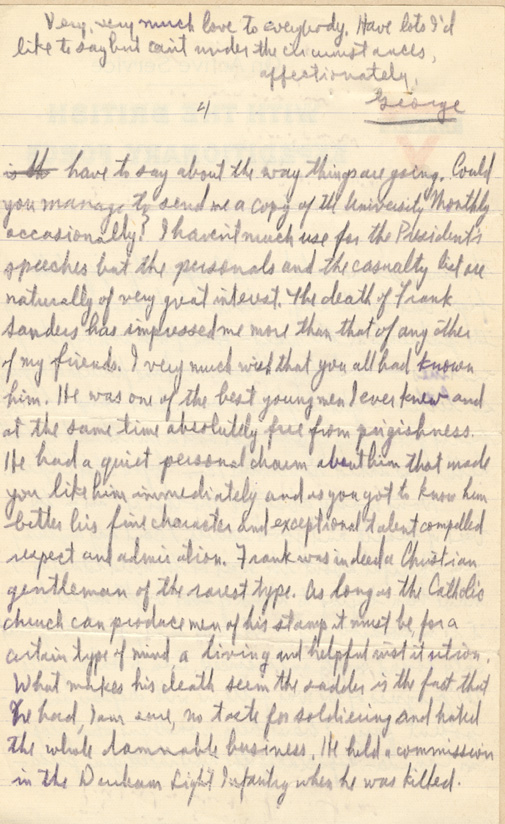 Very, very much love to everybody. Have lots I'd
like to say but can't under the circumstances,
affectionately,
George
4
is th have to say about the way things are going. Could
you manage to send me a copy of the University Monthly
occasionally? I haven't much use for the President's
speeches but the personals and the casualty list are
naturally of very great interest. The death of Frank
Sanders has impressed me more than that of any other
of my friends. I very much wish that you all had known
him. He was one of the best young men I ever knew and
at the same time absolutely free from prigishness.
He had a quiet personal charm about him that made
you like him immediately and as you got to know him
better his fine character and exceptional talent compelled
respect and admiration. Frank was indeed a Christian
gentleman of the rarest type. As long as the Catholic
church can produce men of his stamp it must be, for a
certain type of mind a living and helpful institution.
What makes his death seem the sadder is the fact that
he had, I am sure, no taste for soldiering and hated
the whole damnable business. He held a commission
in the Durham Light Infantry when he was killed.